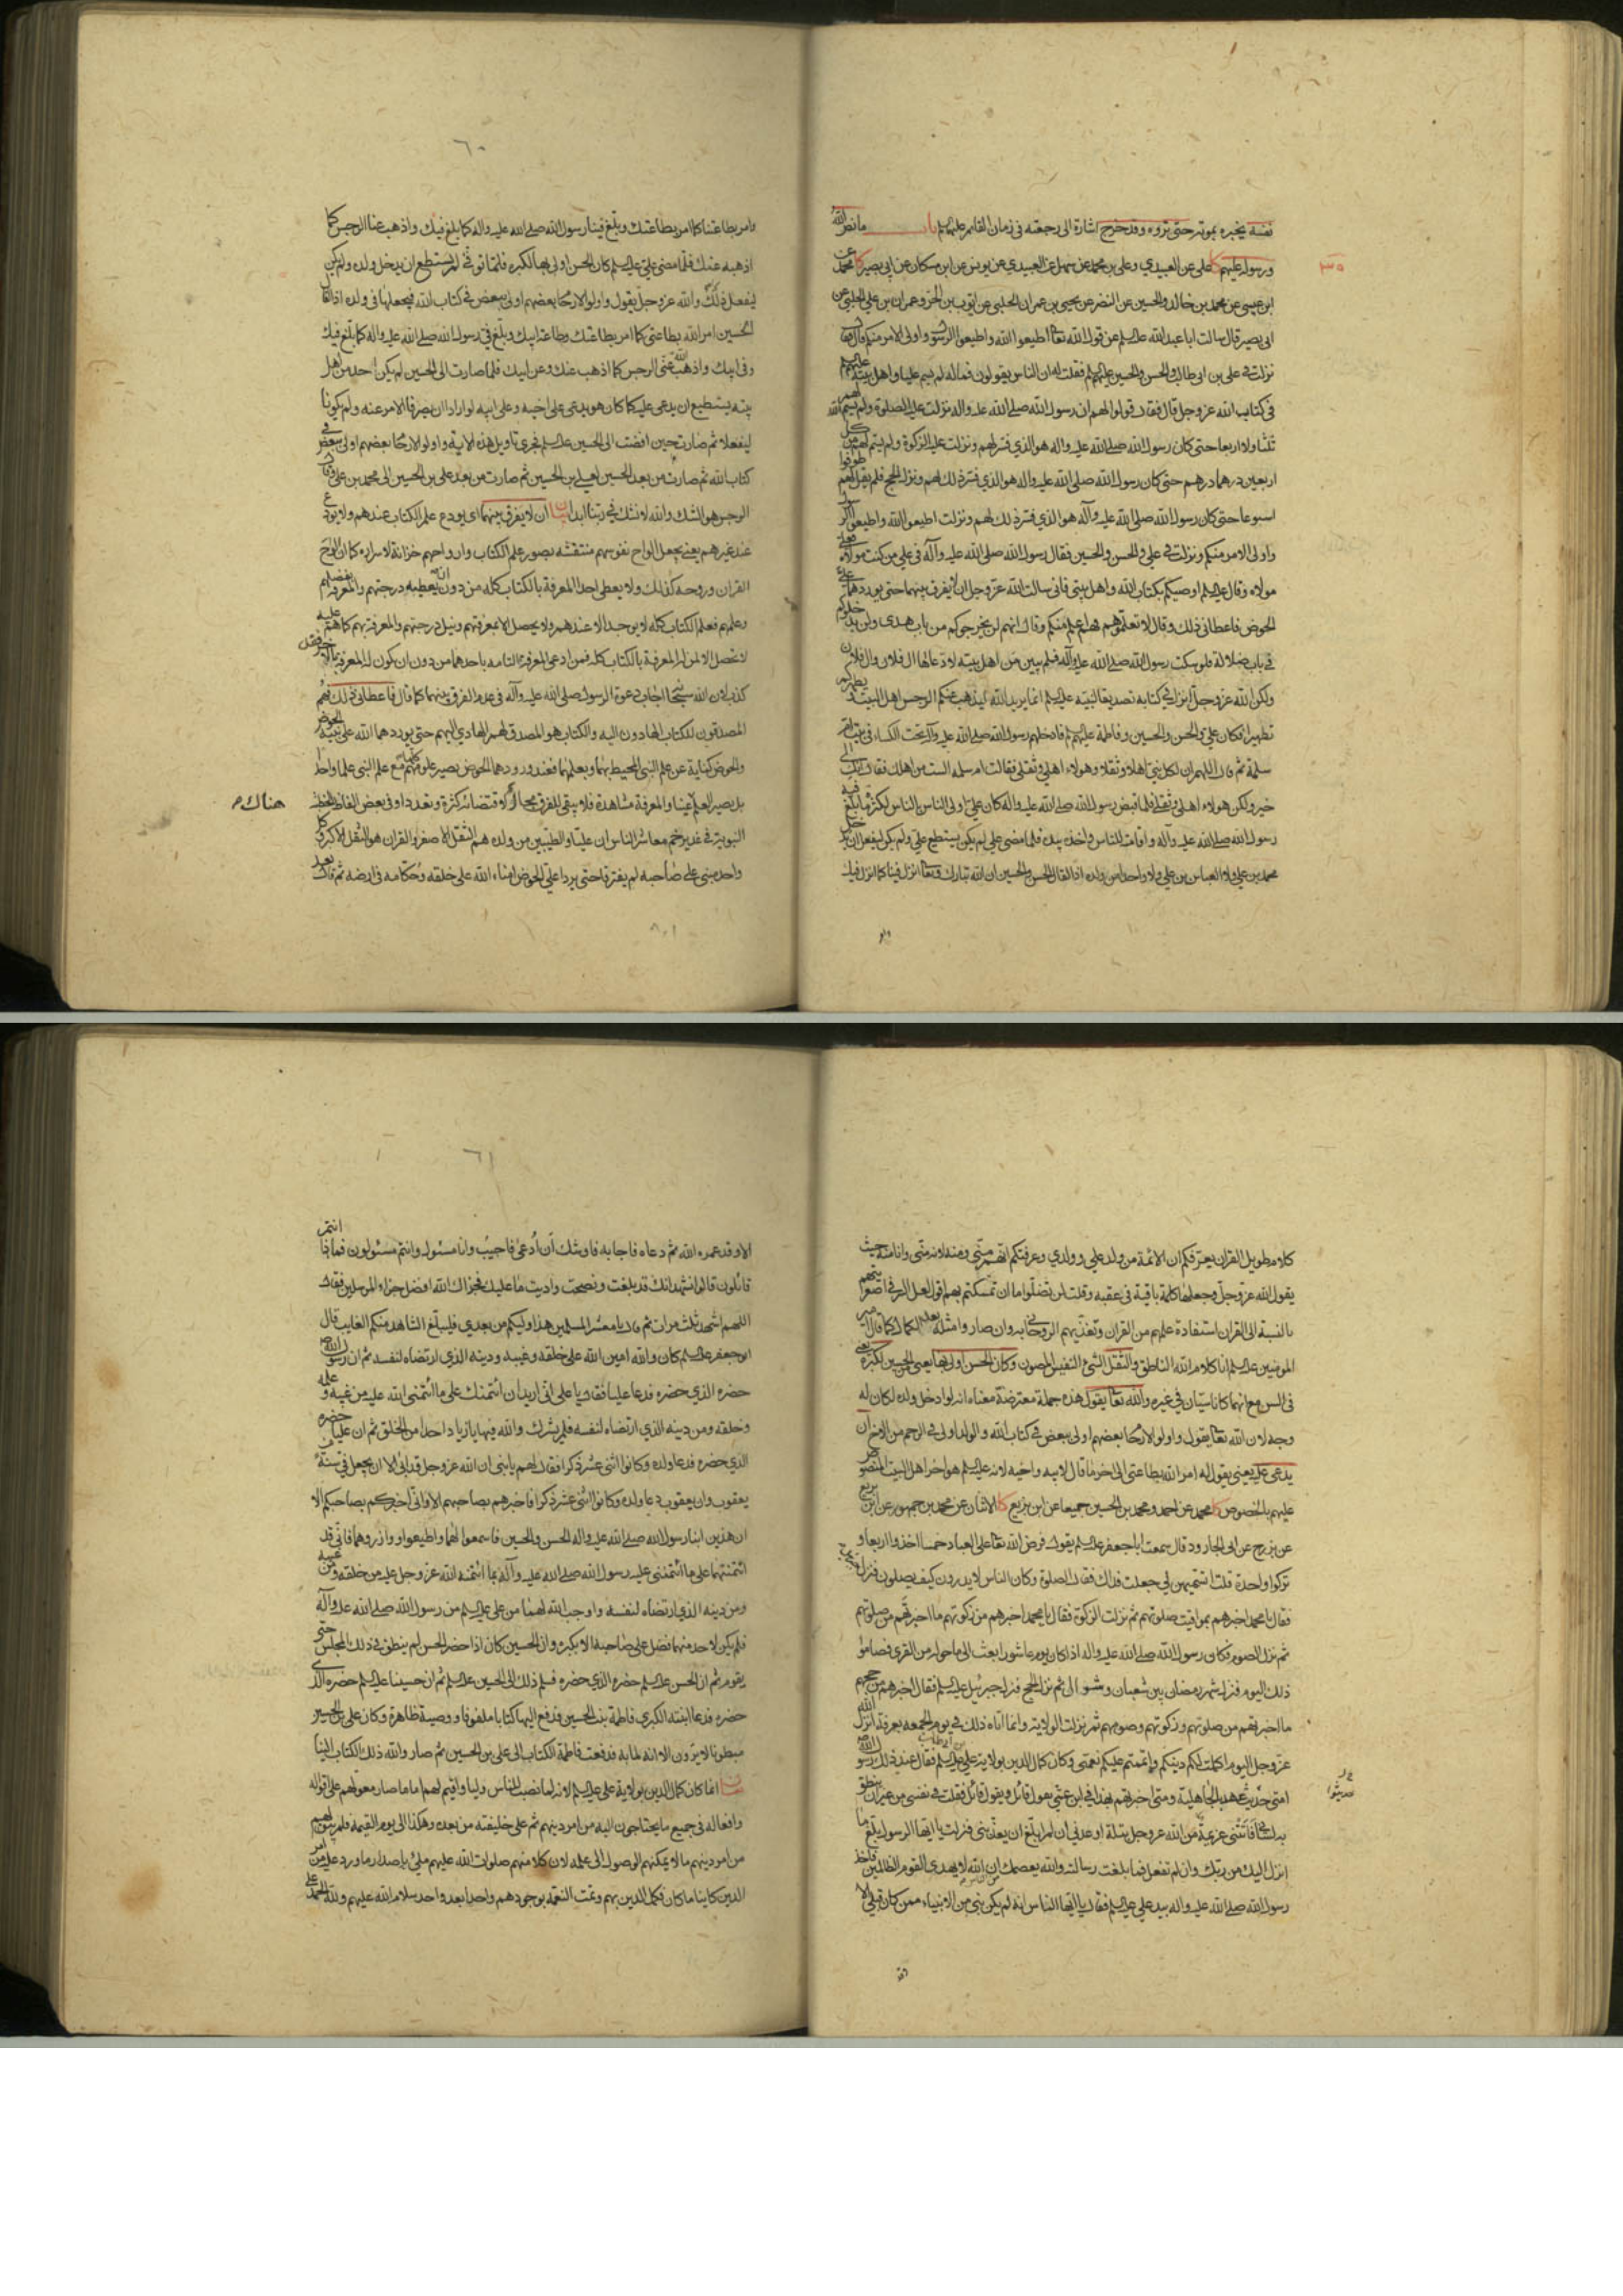 نفسه يخبره بموته حتى تروه وقد خرج اشارة الى رجعته فى زمان القائم عليهم باب ما نص الله
ورسوله عليهم كا على عن العبيدي وعلى بن محمد عن سهل عن العبيدي عن يونس عن ابن مسكان عن ابى بصير كا محمد عن
٣٥
ابن عيسى عن محمد بن خالد والحسين عن النضر عن يحيى بن عمران الحلبى عن ايوب بن الحر وعمران بن على الحلبى عن
ابى بصير قال سالت ابا عبد الله عليه السلم عن قول الله تعا اطيعوا الله واطيعوا الرسول واولى الامر منكم فقال
نزلت فى على بن ابى طالب والحسن والحسين عليهم فقلت له ان الناس يقولون فما له لم يسم عليا واهل بيته
فى كتاب الله عز وجل قال فقال قولوا لهم ان رسول الله صلى الله عليه واله نزلت عليه الصلوة ولم يسم الله لهم
ثلثا ولا اربعا حتى كان رسول الله صلى الله عليه واله هو الذي فسر لهم ونزلت عليه الزكوة ولم يسم لهم من كل
اربعين درهما درهم حتى كان رسول الله صلى الله عليه واله هو الذي فسر ذلك لهم ونزل الحج فلم يقل لهم طوفوا
اسبوعا حتى كان رسول الله صلى الله عليه وآله هو الذي فسر ذلك لهم ونزلت اطيعوا الله واطيعوا الرسول
واولى الامر منكم ونزلت فى على والحسن والحسين فقال رسول الله صلى الله عليه وآله فى على من كنت مولاه فعلى
مولاه وقال عليه السلم اوصيكم بكتاب الله واهل بيتى فانى سالت الله عز وجل ان لا يفرق بينهما حتى يوردهما على
الحوض فاعطانى ذلك وقال لا تعلموهم فهم اعلم منكم وقال انهم لن يخرجوكم من باب هدى ولن يدخلوكم
فى باب ضلالة فلو سكت رسول الله صلى الله عليه وآله فلم يبين من اهل بيته لادعاها ال فلان وال فلان
ولكن الله عز وجل انزل فى كتابه تصديقا لنبيه عليه السلم انما يريد الله ليذهب عنكم الرجس اهل البيت ويطهركم
تطهيرا فكان على والحسن والحسين وفاطمة عليهم فادخلهم رسول الله صلى الله عليه وآله تحت الكساء فى بيت ام
سلمة ثم قال اللهم ان لكل نبى اهلا وثقلا وهولاء اهلى وثقلى فقالت ام سلمه الست من اهلك فقال انك الى
خير ولكن هولاء اهلى وثقلى فلما قبض رسول الله صلى الله عليه واله كان على اولى الناس بالناس لكثرة ما بلغ فيه
رسول الله صلى الله عليه وآله واقامته للناس واخذه بيده فلما مضى على لم يكن يستطيع على ولم يكن ليفعل ان يدخل
محمد بن على ولا العباس بن على ولا واحدا من ولده اذا لقال الحسن والحسين ان الله تبارك وتعا انزل فينا كما انزل فيك
وامر
٦٠
وامر بطاعتنا كما امر بطاعتك وبلغ فينا رسول الله صلى الله عليه واله كما بلغ فيك واذهب عنا الرجس كما
اذهبه عنك فلما مضى على عليه السلم كان الحسن اولى بها لكبره فلما توفى لم يستطع ان يدخل ولده ولم يكن
ليفعل ذلك والله عز وجل يقول واولوا الارحام بعضهم اولى ببعض فى كتاب الله فيجعلها فى ولده اذا لقال
الحسين امر الله بطاعتى كما امر بطاعتك وطاعة ابيك وبلغ فى رسول الله صلى الله عليه واله كما بلغ فيك
وفى ابيك واذهب الله عنى الرجس كما اذهب عنك وعن ابيك فلما صارت الى الحسين لم يكن احد من اهل
بيته يستطيع ان يدعى عليه كما كان هو يدعى على اخيه وعلى ابيه لو ارادا ان يصرفا الامر عنه ولم يكونا
ليفعلا ثم صارت حين افضت الى الحسين عليه السلم فجرى تاويل هذه الاية واولوا الارحام بعضهم اولى ببعض فى
كتاب الله ثم صارت من بعد الحسين لعلى بن الحسين ثم صارت من بعد على بن الحسين الى محمد بن على وقال
الرجس هو الشك والله لا نشك فى ربنا ابدا بيان ان لا يفرق بينهما اى يودع علم الكتاب عندهم ولا يودع
عند غيرهم يعنى يجعل الواح نفوسهم منتقشه بصور علم الكتاب وارواحهم خزانة لاسراره كما ان لوح
القران وروحه كذلك ولا يعطى احدا المعرفة بالكتاب كله من دون ان يعطيه درجتهم والمعرفة بفضلهم
وعلمهم فعلم الكتاب كله لا يوجد الا عندهم ولا يحصل الا بمعرفتهم ونيل درجتهم والمعرفة بهم كما هم عليه
لا تحصل الا لمن له المعرفة بالكتاب كله فمن ادعى المعرفة التامه باحدهما من دون ان يكون له المعرفة بالاخر فقد
كذب لان الله سبحا اجاب دعوة الرسول صلى الله عليه وآله فى عدم الفرق بينهما كما قال فاعطانى ذلك فهم
المصدقون للكتاب الهادون اليه والكتاب هو المصدق لهم الهادي اليهم حتى يوردهما الله على نبيه الحوض
والحوض كناية عن علم النبى المحيط بهما وبعلمهما فعند ورودهما الحوض يصير علومهم كلهم مع علم النبى علما واحدا
بل يصير العلم عينا والمعرفة مشاهدة فلا يبقى للفرق مجال لاقتضائه كثرة وتعددا وفى بعض الفاظ الخطبة
هناك م
النبوية فى غدير خم معاشر الناس ان عليا والطيبين من ولده هم الثقل الاصغر والقران هو الثقل الاكبر وكل
واحد مبنى على صاحبه لم يفترقا حتى يردا على الحوض امناء الله على خلقه وحكامه فى ارضه ثم قال بعد
كلام طويل القران يعرفكم ان الائمة من ولد على وولدي وعرفتكم انهم منى ومنه لانه منى وانا منه حيث
يقول الله عز وجل وجعلها كلمة باقية فى عقبه وقلت لن تضلوا ما ان تمسكتم بهما
بالنسبة الى القران استفادة علمهم من القران وتغذيهم الروحانى به وان صاروا مثله بعد الكمال كما قال امير
المومنين عليه السلم انا كلام الله الناطق والثقل الشئ النفيس المصون وكان الحسن اولى بها يعنى الحسين لكبره يعنى
فى السن مع انهما كانا سيان فى غيره والله تعا يقول هذه جملة معترضة معناه انه لو ادخل ولده لكان له
وجه لان الله تعا يقول واولوا الارحام بعضهم اولى ببعض فى كتاب الله والولد اولى فى الرحم من الاخ ان
يدعى عليه يعنى يقول له امر الله بطاعتى الى اخر ما قال لابيه واخيه لانه عليه السلم هو اخر اهل البيت المنصوص
عليهم بالخصوص كا محمد عن احمد ومحمد بن الحسين جميعا عن ابن بزيع كا الاثنان عن محمد بن جمهور عن ابن بزيع
عن بزرج عن ابى الجارود قال سمعت ابا جعفر عليه السلم يقول فرض الله تعا على العباد خمسا اخذوا اربعا و
تركوا واحدة قلت اتسميهن لى جعلت فداك فقال الصلوة وكان الناس لا يدرون كيف يصلون فنزل
فقال يا محمد اخبرهم بمواقيت صلوتهم ثم نزلت الزكوة فقال يا محمد اخبرهم من زكوتهم ما اخبرتهم من صلوتهم
ثم نزل الصوم فكان رسول الله صلى الله عليه واله اذا كان يوم عاشورا بعث الى ما حوله من القرى فصاموا
ذلك اليوم فنزل شهر رمضان بين شعبان وشوال ثم نزل الحج فنزل جبرئيل عليه السلم فقال اخبرهم من حجهم
ما اخبرتهم من صلوتهم وزكوتهم وصومهم ثم نزلت الولاية وانما اتاه ذلك فى يوم الجمعه بعرفة انزل الله
عز وجل اليوم اكملت لكم دينكم واتممت عليكم نعمتى وكان كمال الدين بولاية على بن ابى طالب عليه السلم فقال عند ذلك رسول الله ص
امتى حديثو عهد بالجاهلية ومتى اخبرتهم بهذا فى ابن عمى يقول قائل ويقول قائل فقلت فى نفسى من غير ان ينطق
به لسانى فاتتنى عزيمة من الله عز وجل بتلة اوعدنى ان لم ابلغ ان يعذبنى فنزلت يا ايها الرسول بلغ ما
انزل اليك من ربك وان لم تفعل فما بلغت رسالته والله يعصمك من الناس ان الله لا يهدى القوم الظالمين فاخذ
رسول الله صلى الله عليه واله بيد على عليه السلم فقال يا ايها الناس انه لم يكن نبى من الانبياء ممن كان قبلى الا
وقد
٦١
الا وقد عمره الله ثم دعاه فاجابه فاوشك ان ادعى فاجيب وانا مسئول وانتم مسئولون فماذا انتم
قائلون قالوا نشهد انك قد بلغت ونصحت واديت ما عليك فجزاك الله افضل جزاء المرسلين فقال
اللهم اشهد ثلث مرات ثم قال يا معشر المسلمين هذا وليكم من بعدي فليبلغ الشاهد منكم الغايب قال
ابو جعفر عليه السلم كان والله امين الله على خلقه وغيبه ودينه الذي ارتضاه لنفسه ثم ان رسول الله ص
حضره الذي حضره فدعا عليا فقال يا على انى اريد ان ائتمنك على ما ائتمننى الله عليه من غيبه وعلمه
وخلقه ومن دينه الذي ارتضاه لنفسه فلم يشرك والله فيها يا زياد احدا من الخلق ثم ان عليا حضره
الذي حضره فدعا ولده وكانوا اثنى عشر ذكرا فقال لهم يا بنى ان الله عز وجل قد ابى الا ان يجعل فى سنة من
يعقوب وان يعقوب دعا ولده وكانوا اثنى عشر ذكرا فاخبرهم بصاحبهم الا وانى اخبركم بصاحبكم الا
ان هذين ابنا رسول الله صلى الله عليه واله الحسن والحسين فاسمعوا لهما واطيعوا ووازروهما فانى قد
ائتمنتهما على ما ائتمننى عليه رسول الله صلى الله عليه وآله مما ائتمنه الله عز وجل عليه من خلقه ومن غيبه
ومن دينه الذي ارتضاه لنفسه واوجب الله لهما من على عليه السلم من رسول الله صلى الله عليه وآله
فلم يكن لاحد منهما فضل على صاحبه الا بكبره وان الحسين كان اذا حضر الحسن لم ينطق فى ذلك المجلس حتى
يقوم ثم ان الحسن عليه السلم حضره الذي حضره فسلم ذلك الى الحسين عليه السلم ثم ان حسينا عليه السلم حضره الذي
حضره فدعا ابنته الكبرى فاطمة بنت الحسين فدفع اليها كتابا ملفوفا ووصية ظاهرة وكان على بن الحسين
مبطونا لا يرون الا انه لما به فدفعت فاطمة الكتاب الى على بن الحسين ثم صار والله ذلك الكتاب الينا
بيان انما كان كمال الدين بولاية على عليه السلم لانه لما نصب للناس وليا واقيم لهم اماما صار معولهم على اقواله
وافعاله فى جميع ما يحتاجون اليه من امر دينهم ثم على خليفته من بعده وهكذا الى يوم القيمة فلم يبق لهم
من امر دينهم ما لا يمكنهم الوصول الى علمه لان كلا منهم صلوات الله عليهم ملئ باصدار ما ورد عليه من امر
الدين كاينا ما كان فكمل الدين بهم وتمت النعمة بوجودهم واحدا بعد واحد سلام الله عليهم ولله الحمد على